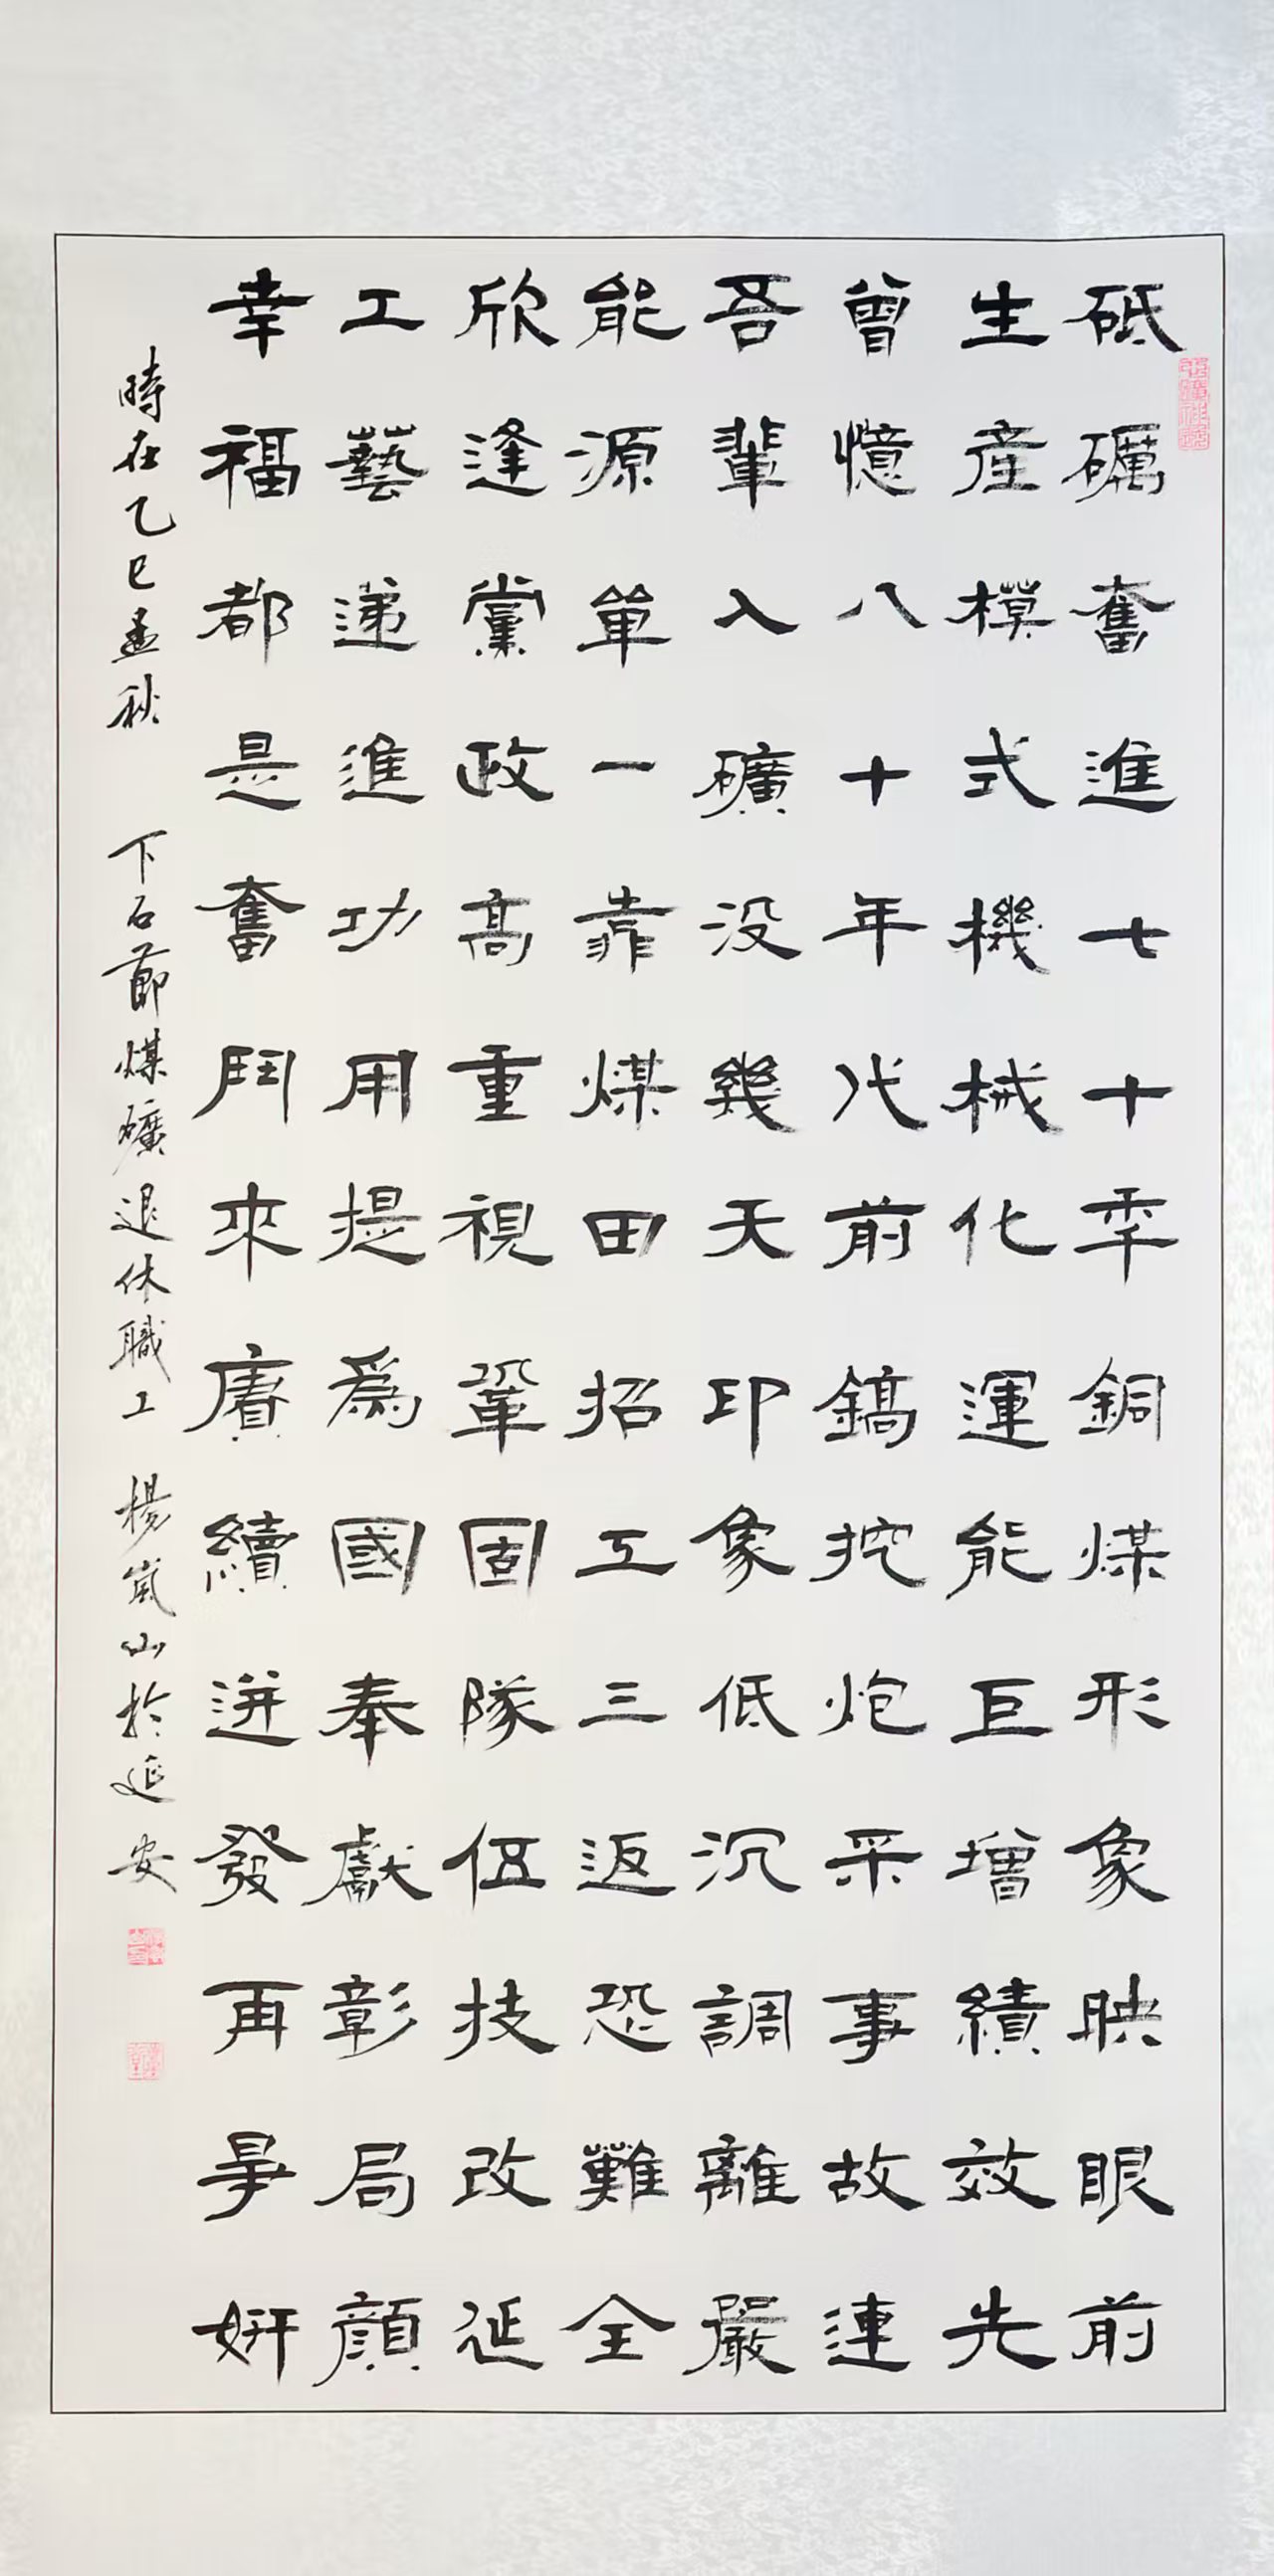 砥礪奮進七十季銅煤形象映眼前
生産模式機械化運能巨增績效先
曾憶八十年代前鎬挖炮采事故連
吾輩入礦没幾天印象低沉調離嚴
能源單一靠煤田招工三返恐難全
欣逢黨政高重視鞏固隊伍技改延
工藝递進功用提爲國奉獻彰局顔
幸福都是奮鬥來賡續迸發再爭妍
時在乙巳孟秋 下石節煤礦退休職工 楊嵐山於延安